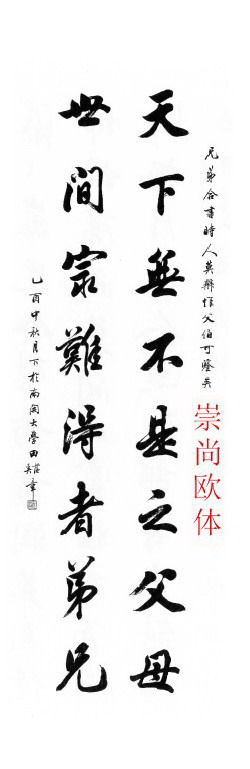 兄弟合書時人莫辨惟父伯可鑒矣
崇尚欧体
天下無不是之父母
世間最難得者弟兄
乙酉中秋月下於南開大學田蘊章